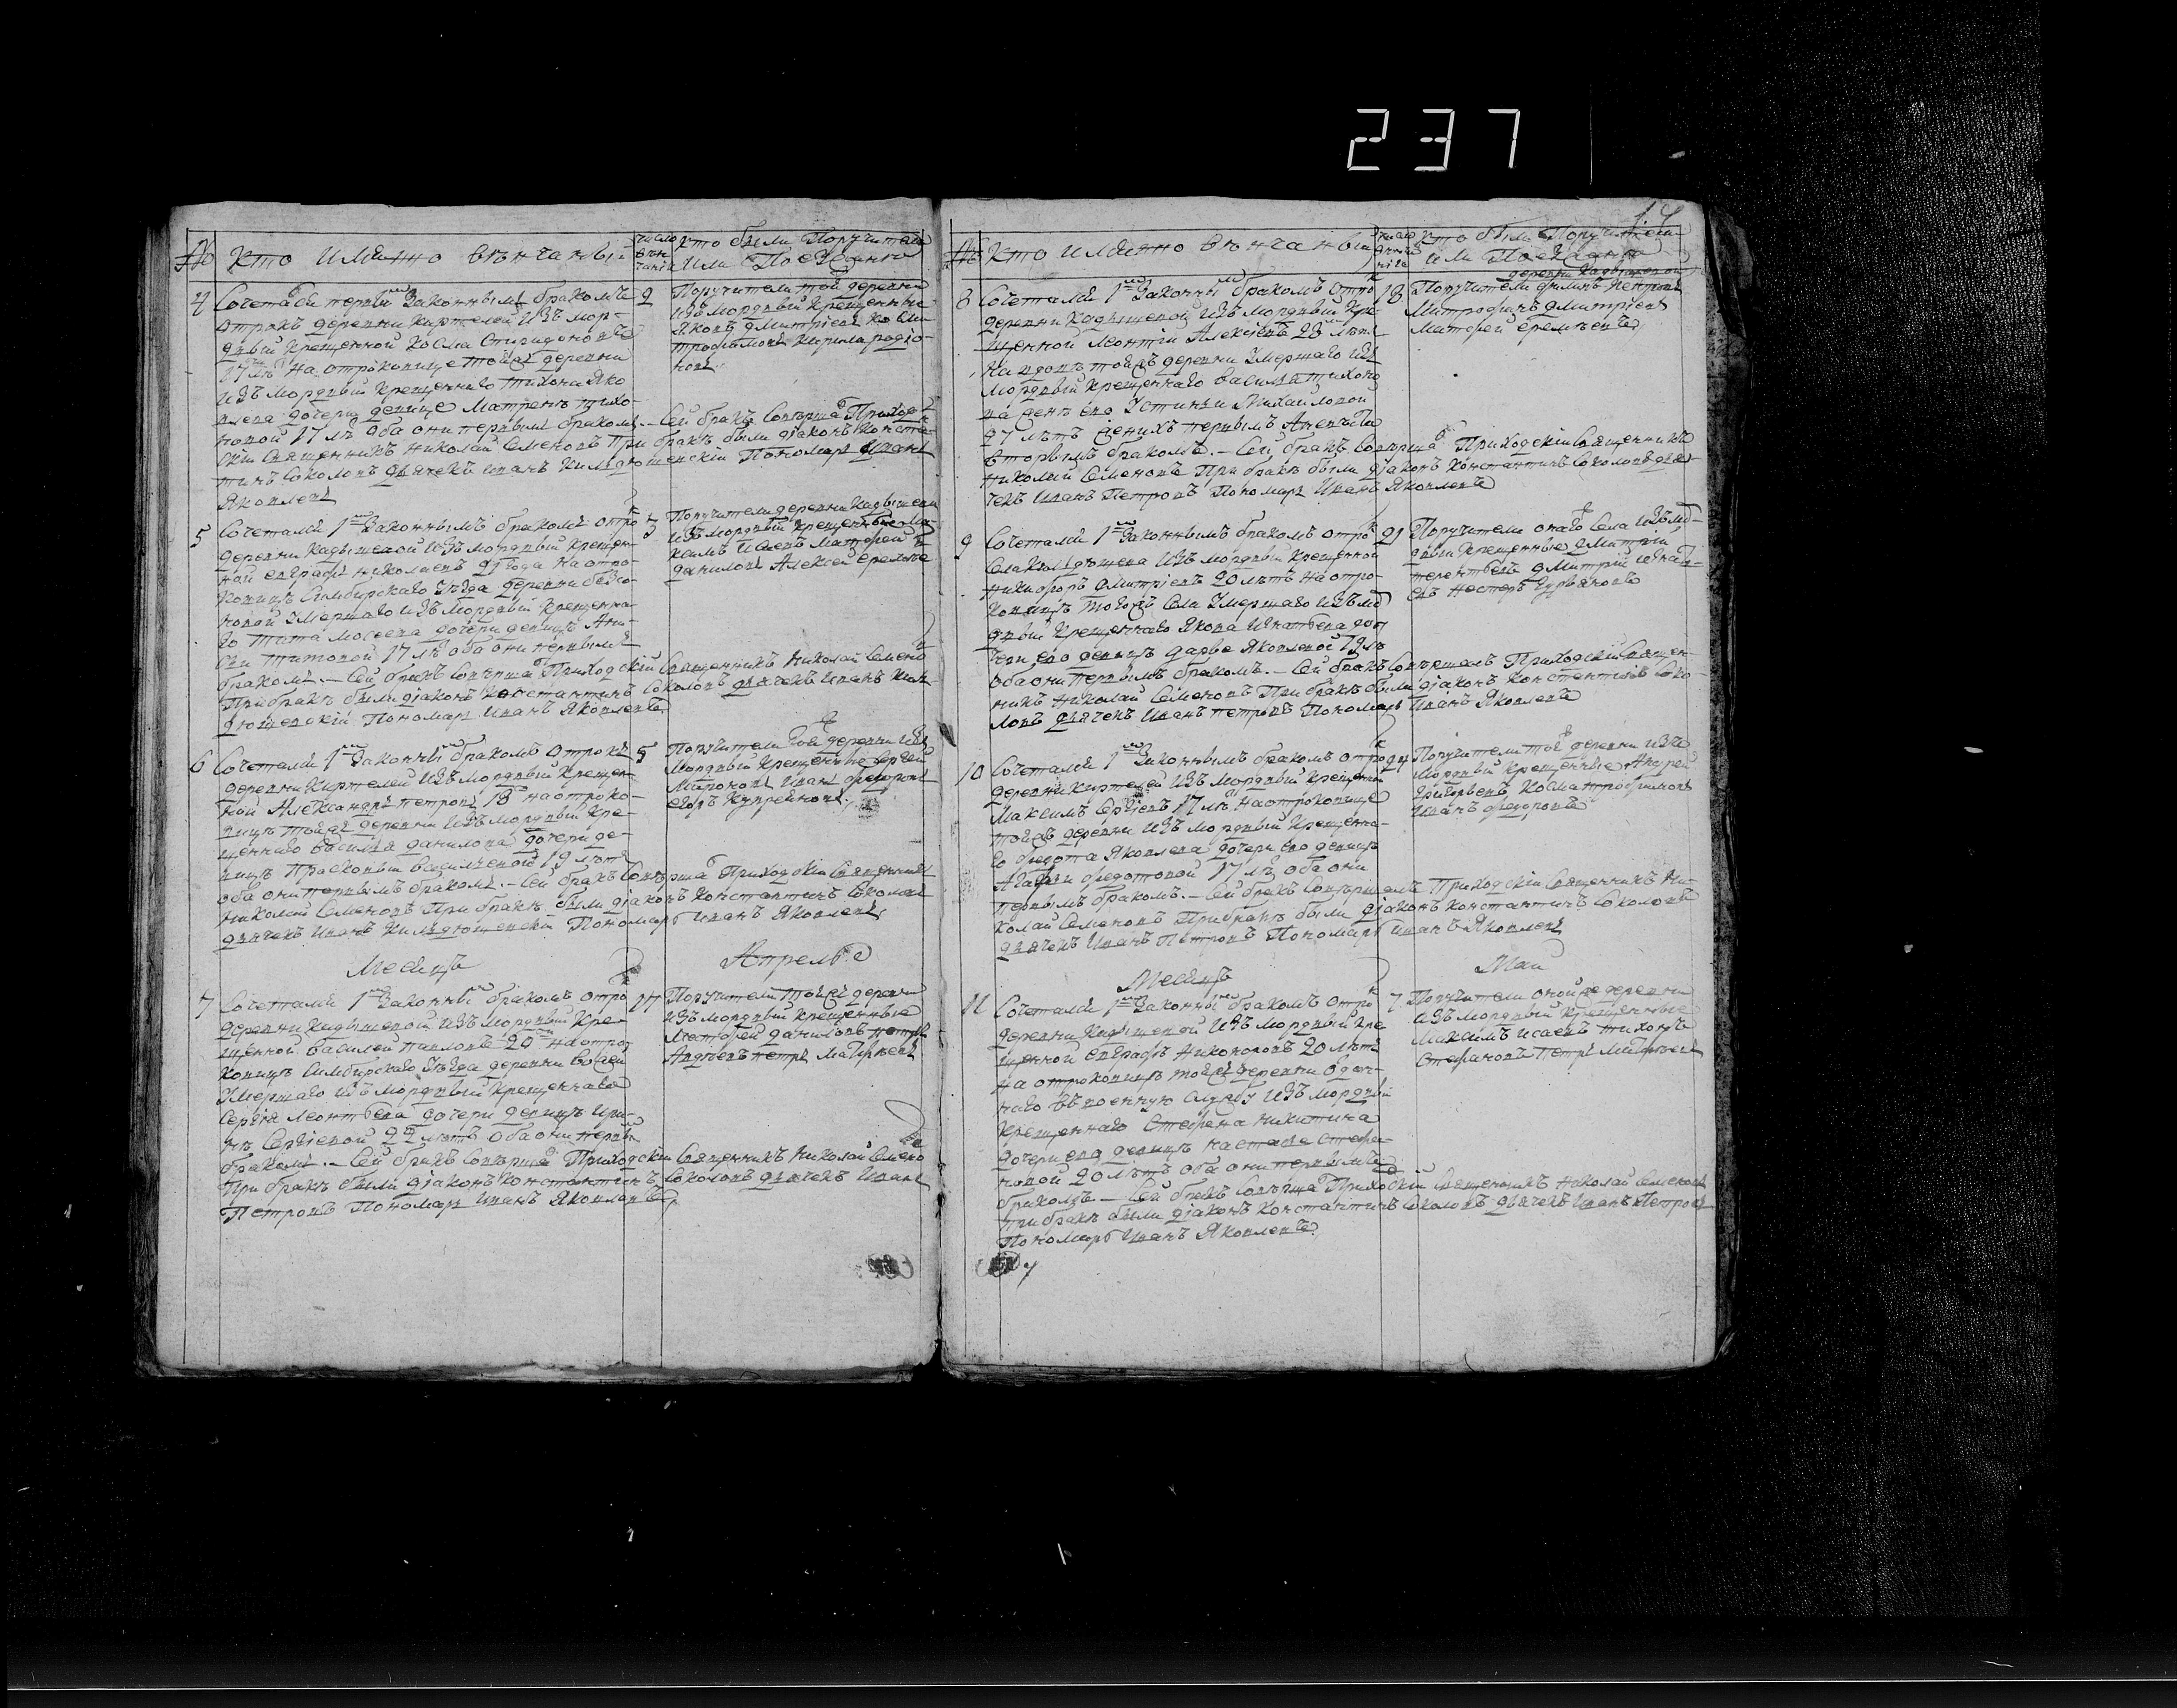 237
№ Кто имянно венчаныи число венчанія Кто были Поручители
или Поезжанѣ
4 Сочетался первы законнымъ бракомъ 2
отрокъ деревни Киртелей изъ мор-
двы крещенной Косма Спиридоновъ
17 лѣ на отроковице тойже деревни
изъ мордвы крещеннаго Тихона Яко
влева дочери девице Матрене Тихо-
новой 17 лѣ оба они первым бракомъ. Сей бракъ соверша Приход
скіи священникъ Николай Семеновъ При бракѣ были діаконъ Конста
тинъ Соколовъ дьячекъ Иванъ Кильдюшевскіи Пономарь Иванъ
Яковлевъ
Поручители той деревни
изъ мордвы крещенные
Яковъ Дмитріевъ Косма
Трофимовъ Кирила Родіо-
новъ.
5 Сочетался 1 законнымъ бракомъ отро 3
деревни Кадышевой изъ мордвы крещен-
ной Евграфъ Николаевъ 21 года на отро-
ковицѣ Симбирскаго уѣзда деревни
умершаго изъ мордвы крещенна-
го Тита Мосеева дочери девицѣ
Титовой 17 лѣ оба они первымъ
бракомъ. Сей бракъ соверша Приходскій священникъ Николай Семено
При бракѣ были діаконъ Константинъ Соколовъ дьячекъ Иванъ Киль-
дюшевскій Пономарь Иванъ Яковлевъ
Поручители деревни Кадышевой
изъ мордвы крещенные Ма-
ксимъ Исаевъ Матфей
Даниловъ Алексей Еремѣевъ
6 Сочетался 1 законны бракомъ отрокъ 5
деревни Киртелей изъ мордвы крещен-
ной Александръ Петровъ 18 на отроко-
вицѣ тойже деревни изъ мордвы кре-
щеннаго Василья Данилова дочери де-
вицѣ Просковьи Васильевой 19 лѣтъ
оба они первымъ бракомъ. Сей бракъ соверша Приходскіи священникъ
Николай Семеновъ При бракѣ были діаконъ Константинъ Соколовъ
дьячекъ Иванъ Кильдюшевскіи Пономарь Иванъ Яковлевъ
Поручители той деревни изъ
мордвы крещенные Сергей
Мароновъ Иванъ Федоровъ
Егоръ Купреяновъ
Месецъ Апрель
7 Сочетался 1 законны бракомъ отро 27
деревни Кадышевой изъ мордвы кре-
щенной Василей Павловъ 20 на отро-
ковицѣ Симбирскаго уѣзда деревни
умершаго изъ мордвы крещеннаго
Сергѣя Леонтьева дочери девицѣ Ири-
нѣ Сергіевой 22 лѣтъ оба они первы
бракомъ. Сей бракъ соверша Приходскіи священникъ Николай Семено
При бракѣ были діаконъ Константинъ Соколовъ дьячекъ Иванъ
Петровъ Пономарь Иванъ Яковлевъ
Поручители тойже деревни
изъ мордвы крещенные
Матфей Даниловъ Петръ
Андреевъ Петръ Матвѣевъ
№ Кто имянно венчаны Кто были Поручители
или Поезжанѣ
8 Сочетался 1 законны бракомъ отро 18
деревни Кадышевой изъ мордвы кре-
щенной Леонтіи Алексіевъ 23 лѣтъ
на вдовѣ тойже деревни умершаго изъ
мордвы крещеннаго Василья Тихоно
ва женѣ ево Устиньи Михайловой
27 лѣтъ женихъ первымъ а невѣста
вторымъ бракомъ. Сей бракъ соверша Приходскіи священникъ
Николай Семеновъ При бракѣ были діаконъ Константинъ Соколовъ дья-
чекъ Иванъ Петровъ Пономарь Иванъ Яковлевъ
деревни Кадышевой
Поручители Филипъ Петровъ
Митрофанъ Дмитріевъ
Матфей Еремѣевъ
9 Сочетался 1 законнымъ бракомъ отро 21
села Кильдюшева изъ мордвы крещенной
Никифоръ Дмитріевъ 20 лѣтъ на отро-
ковицѣ тогожъ села умершаго изъ мо
рдвы крещеннаго Якова Игнатьева до
чери ево девицѣ Дарье Яковлевой 19 лѣ
оба они первымъ бракомъ. Сей бракъ совершалъ Приходскіи священ-
никъ Николай Семеновъ При бракѣ были діаконъ Константинъ Соко-
ловъ дьячекъ Иванъ Петровъ Пономарь Иванъ Яковлевъ
Поручители онаго села изъ мо-
рдвы крещенные Дмитрій
Терентьевъ Дмитрій Игнать-
евъ Несторъ
10 Сочетался 1 законнымъ бракомъ отро 24
деревни Киртелей изъ мордвы крещенной
Максимъ Сергіевъ 17 лѣ на отроковице
тойжъ деревни изъ мордвы крещенна-
го Федота Яковлева дочери ево девицѣ
Агафьи Федотовой 17 лѣ оба они
первымъ бракомъ. Сей бракъ совершалъ Приходскіи священникъ Ни-
колай Семеновъ При бракѣ были діаконъ Константинъ Соколовъ
дьячекъ Иванъ Петровъ Пономарь Иванъ Яковлевъ
Поручители той деревни изъ
мордвы крещенные Андрей
Григорьевъ Косма Трофимовъ
Иванъ Федоровъ
Месецъ Маи
11 Сочетался 1 законны бракомъ отро 7
деревни Кадышевой изъ мордвы кре
щенной Евграфъ Никоноровъ 20 лѣтъ
на отроковицѣ тойже деревни отдан-
наго въ военную службу изъ мордвы
крещеннаго Стефана Никитина
дочери ево девицѣ Настасье Стефа-
новой 20 лѣтъ оба они первымъ
бракомъ Сей бракъ соверша Приходскій священникъ Николай Семеновъ
При бракѣ были діаконъ Константинъ Соколовъ дьячекъ Иванъ Петровъ
Пономарь Иванъ Яковлевъ.
Поручители оной же деревни
изъ мордвы крещенные
Максимъ Исаевъ Тихонъ
Стефановъ Петръ Матвѣевъ